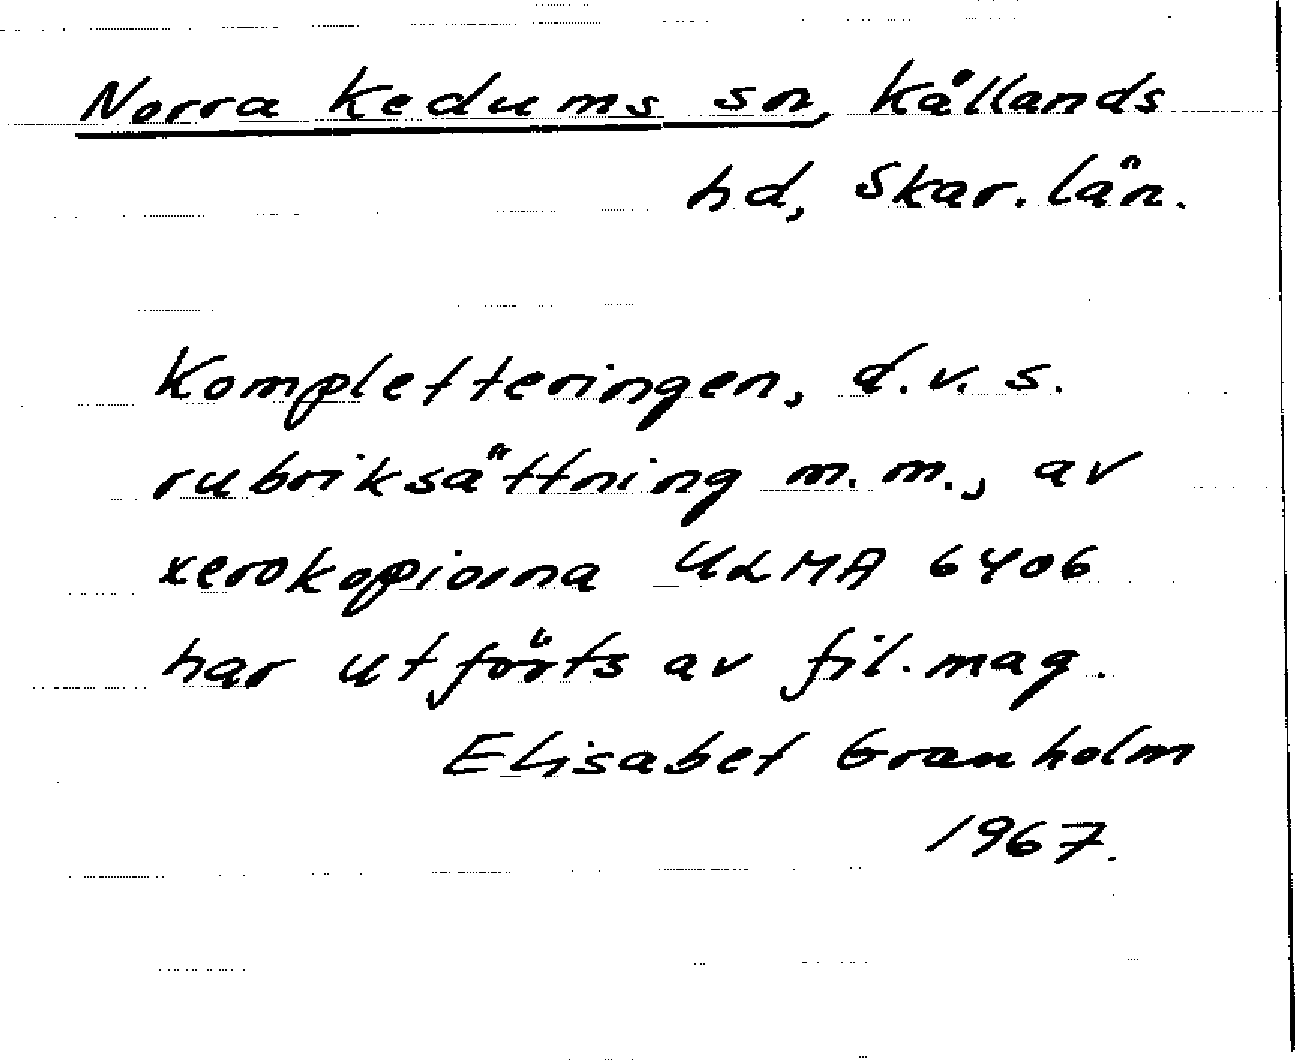 Norra Kedums sn, Kållands
hd, Skar. län.
Kompletteringen, d.v.s.
rubriksättning m.m., av
xerokopiorna ULMA 6406
har utförts av fil. mag.
Elisabet Granholm
1967.